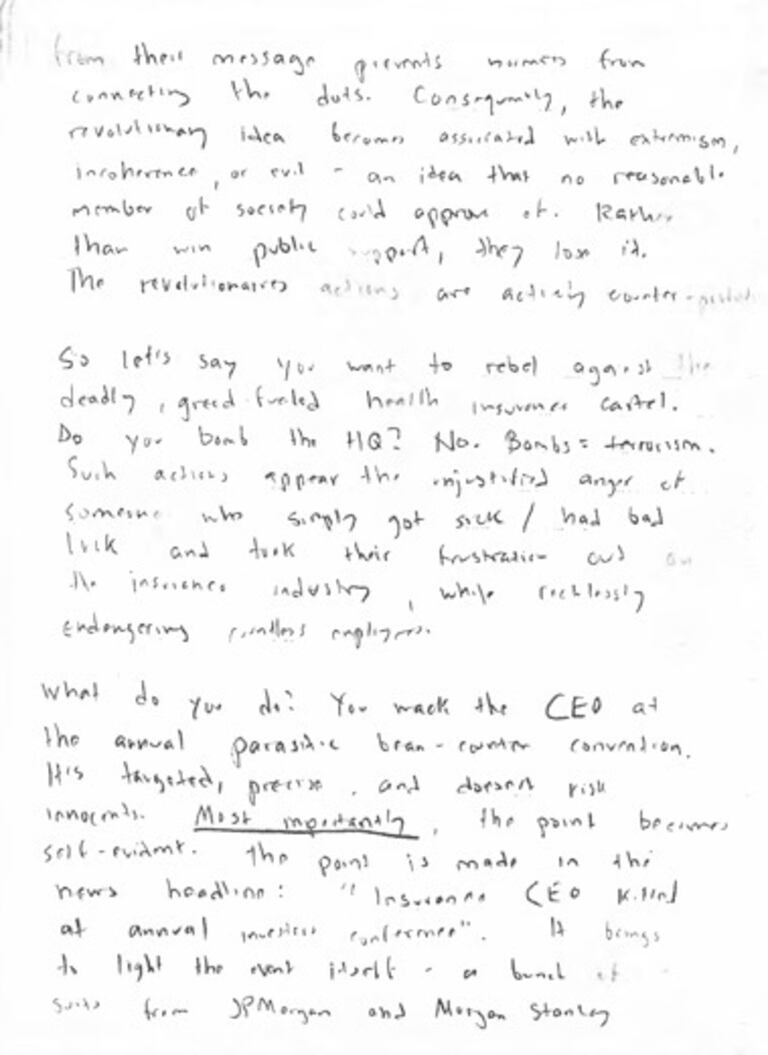 from their message prevents normies from
connecting the dots. Consequently, the
revolutionary idea becomes associated with extremism,
incoherence, or evil - an idea that no reasonable
member of society could approve of. Rather
than win public support, they lose it.
The revolutionaries actions are actively counter-
So let's say you want to rebel against the
deadly, greed-fueled health insurance cartel.
Do you bomb the HQ? No. Bombs = terrorism.
Such actions appear the unjustified anger of
someone who simply got sick / had bad
luck and took their frustration out on
the insurance industry, while recklessly
endangering countless employees.
What do you do? You wack the CEO at
the annual parasitic bean-counter convention.
It's targeted, precise, and doesnt risk
innocents. Most importantly, the point becomes
self-evident. The point is made in the
news headline: "Insurance CEO killed
at annual investors conference". It brings
to light the event itself - a bunch of
suits from JPMorgan and Morgan Stanley